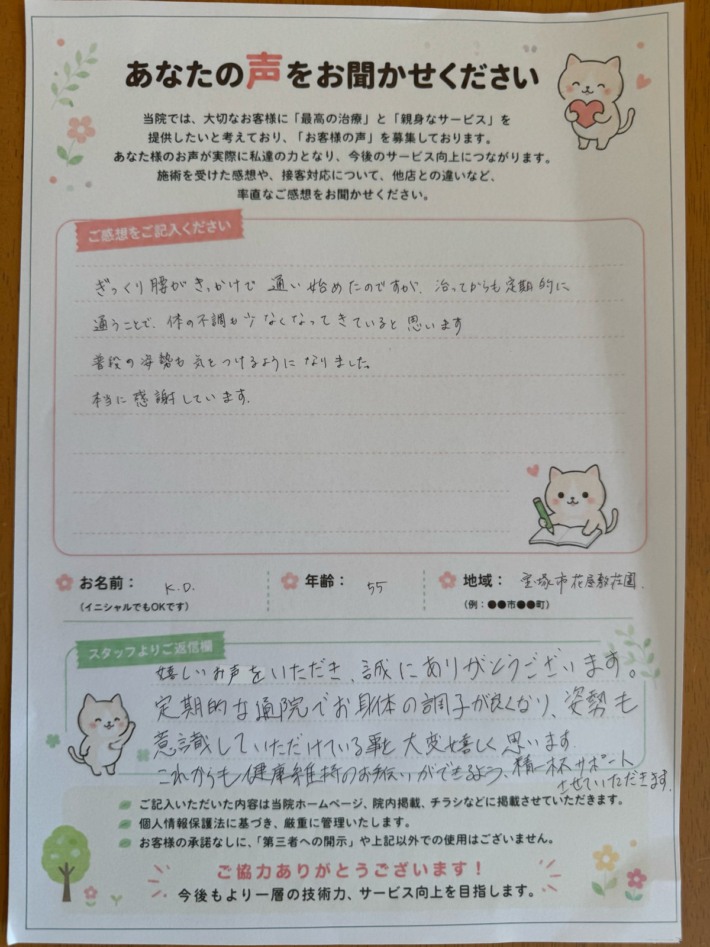 あなたの声をお聞かせください
当院では、大切なお客様に「最高の治療」と「親身なサービス」を
提供したいと考えており、「お客様の声」を募集しております。
あなた様のお声が実際に私達の力となり、今後のサービス向上につながります。
施術を受けた感想や、接客対応について、他店との違いなど、
率直なご感想をお聞かせください。
ご感想をご記入ください
ぎっくり腰がきっかけで通い始めたのですが、治ってからも定期的に
通うことで、体の不調も少なくなってきていると思います
普段の姿勢も気をつけるようになりました。
本当に感謝しています.
お名前： K.O.
（イニシャルでもOKです）
年齢： 55
地域： 宝塚市花屋敷荘園.
（例：●●市●●町）
スタッフよりご返信欄
嬉しいお声をいただき、誠にありがとうございます。
定期的な通院でお身体の調子が良くなり、姿勢も
意識していただけている事を大変嬉しく思います.
これからも健康維持のお手伝いができるよう、精一杯サポート
させていただきます.
ご記入いただいた内容は当院ホームページ、院内掲載、チラシなどに掲載させていただきます。
個人情報保護法に基づき、厳重に管理いたします。
お客様の承諾なしに、「第三者への開示」や上記以外での使用はございません。
ご協力ありがとうございます！
今後もより一層の技術力、サービス向上を目指します。